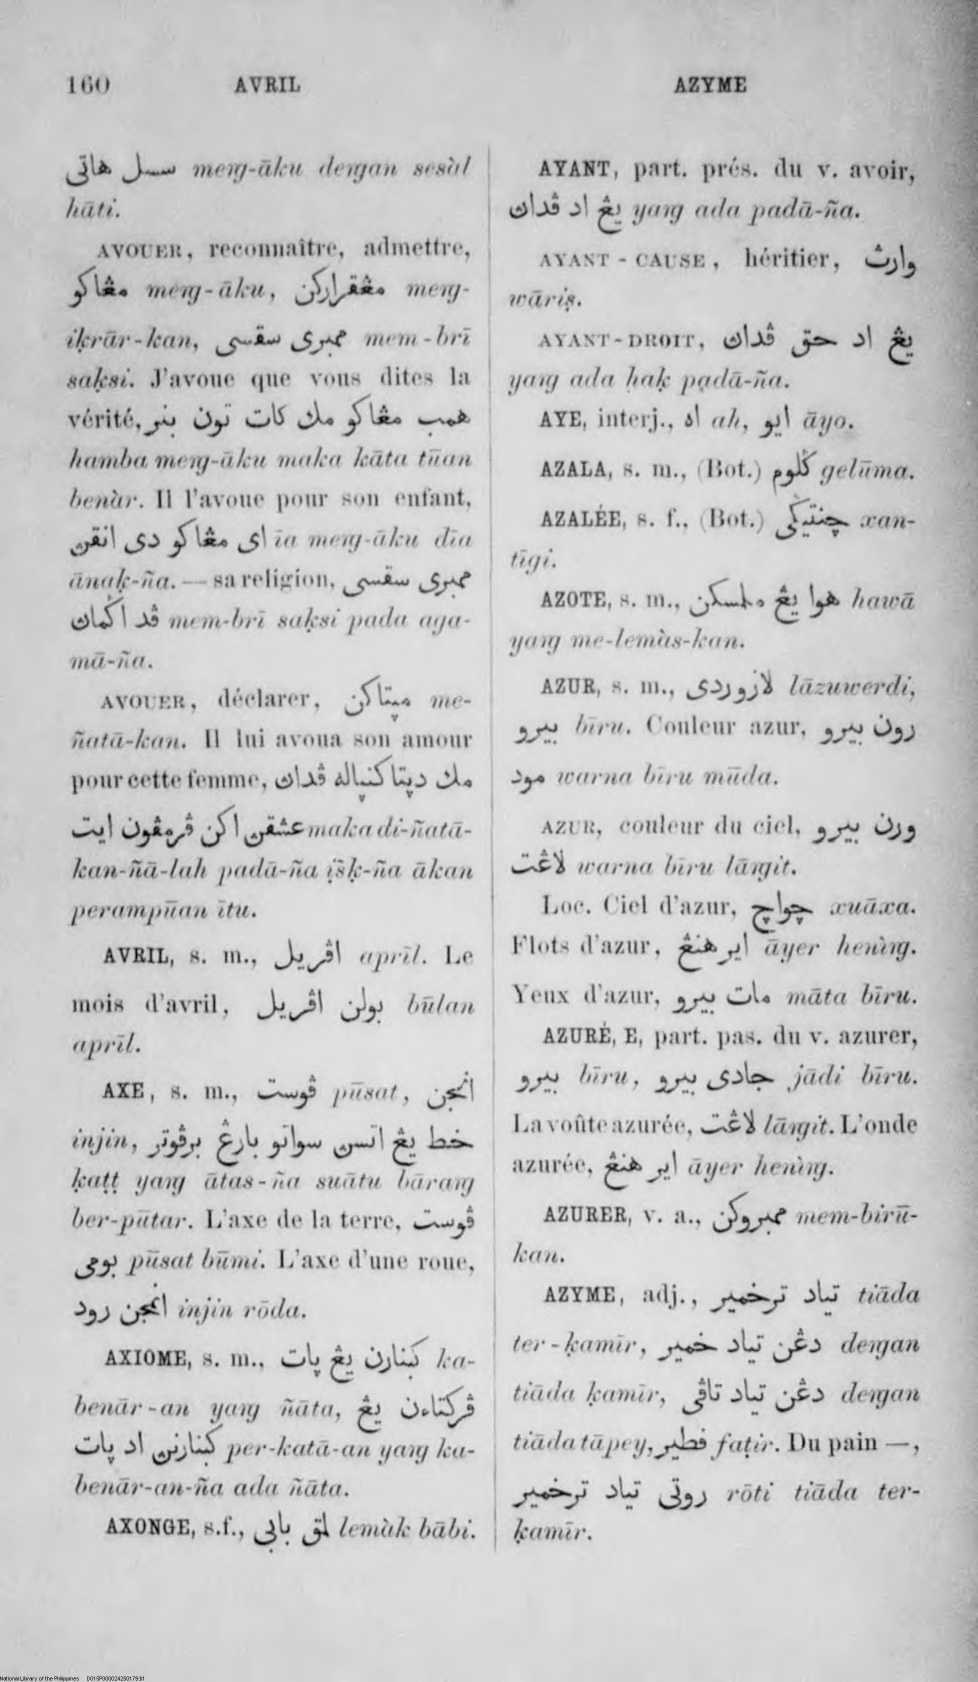 160 AVRIL AZYME
سسل هاتي meng-āku dengan sesàl
hāti.
AVOUER, reconnaître, admettre,
مڠاكو meng-āku, مڠقراركن meng-
iḳrār-kan, ممبري سقسي mem-brī
saḳsi. J'avoue que vous dites la
vérité, همب مڠاكو مك كات تون بنر
hamba meng-āku maka kāta tūan
benàr. Il l'avoue pour son enfant,
اي مڠاكو دي انقڽ īa meng-āku dīa
ānaḳ-ña. — sa religion, ممبري سقسي
ڤد اݢماڽ mem-brī saḳsi pada aga-
mā-ña.
AVOUER, déclarer, مڽتاكن me-
ñatā-kan. Il lui avoua son amour
pour cette femme, مك دڽتاكنڽاله ڤداڽ
عشقڽ اكن ڤرمڤون ايت maka di-ñatā-
kan-ñā-lah padā-ña ịšḳ-ña ākan
perampūan ītu.
AVRIL, s. m., اڤريل aprīl. Le
mois d'avril, بولن اڤريل būlan
aprīl.
AXE, s. m., ڤوست pūsat, انجن
injin, خط يڠ اتسڽ سواتو بارڠ برڤوتر
ḳaṭṭ yang ātas-ña suātu bārang
ber-pūtar. L'axe de la terre, ڤوست
بومي pūsat būmi. L'axe d'une roue,
انجن رود injin rōda.
AXIOME, s. m., كبنارن يڠ ڽات ka-
benār-an yang ñāta, ڤركتاءن يڠ
كبنارنڽ اد ڽات per-katā-an yang ka-
benār-an-ña ada ñāta.
AXONGE, s.f., لمق بابي lemàk bābi.
AYANT, part. prés. du v. avoir,
يڠ اد ڤداڽ yang ada padā-ña.
AYANT-CAUSE, héritier, وارث
wāriṣ.
AYANT-DROIT, يڠ اد حق ڤداڽ
yang ada ḥaḳ padā-ña.
AYE, interj., اه ah, ايو āyo.
AZALA, s. m., (Bot.) ݢلوم gelūma.
AZALÉE, s. f., (Bot.) چنتيݢي xan-
tīgi.
AZOTE, s. m., هوا يڠ ملمسكن hawā
yang me-lemàs-kan.
AZUR, s. m., لازوردي lāzuwerdi,
بيرو bīru. Couleur azur, رون بيرو
مود warna bīru mūda.
AZUR, couleur du ciel, ورن بيرو
لاڠت warna bīru lāngit.
Loc. Ciel d'azur, چواچ xuāxa.
Flots d'azur, اير هنڠ āyer hening.
Yeux d'azur, مات بيرو māta bīru.
AZURÉ, E, part. pas. du v. azurer,
بيرو bīru, جادي بيرو jādi bīru.
La voûte azurée, لاڠت lāngit. L'onde
azurée, اير هنڠ āyer hening.
AZURER, v. a., ممبروكن mem-birū-
kan.
AZYME, adj., تياد ترخمير tiāda
ter-ḳamīr, دڠن تياد خمير dengan
tiāda ḳamīr, دڠن تياد تاڤي dengan
tiāda tāpey, فطير faṭir. Du pain —,
روتي تياد ترخمير rōti tiāda ter-
ḳamīr.
National Library of the Philippines